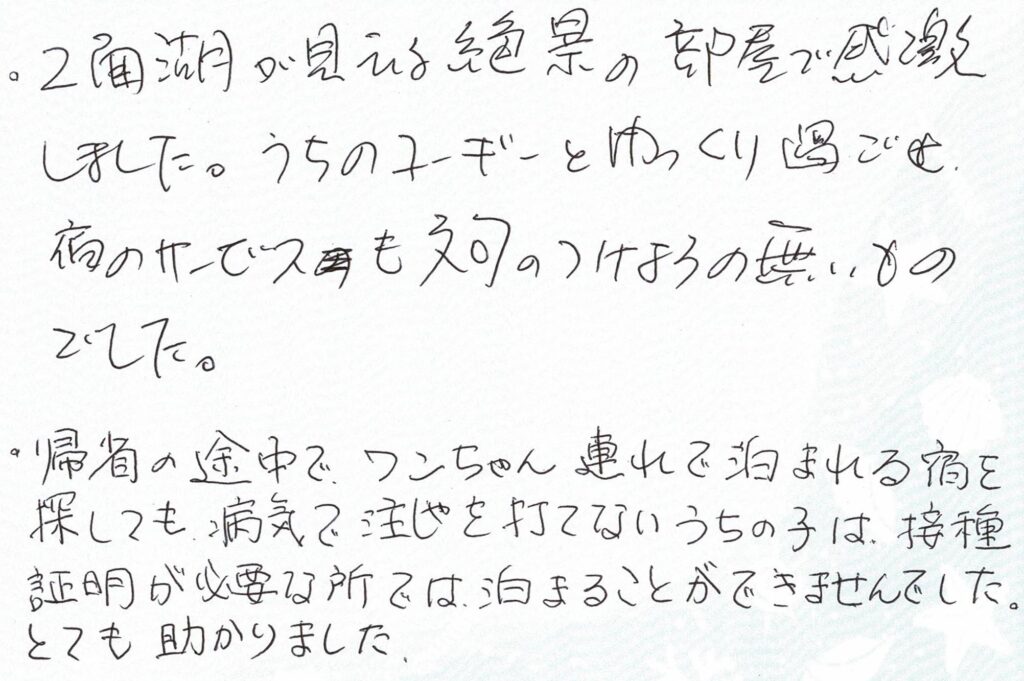 ・2面湖が見える絶景の部屋で感激
しました。うちのコーギーとゆっくり過ごせ、
宿のサービスも文句のつけようの無いもの
でした。
・帰省の途中で、ワンちゃん連れで泊まれる宿を
探しても、病気で注しゃを打てないうちの子は、接種
証明が必要な所では、泊まることができませんでした。
とても助かりました。